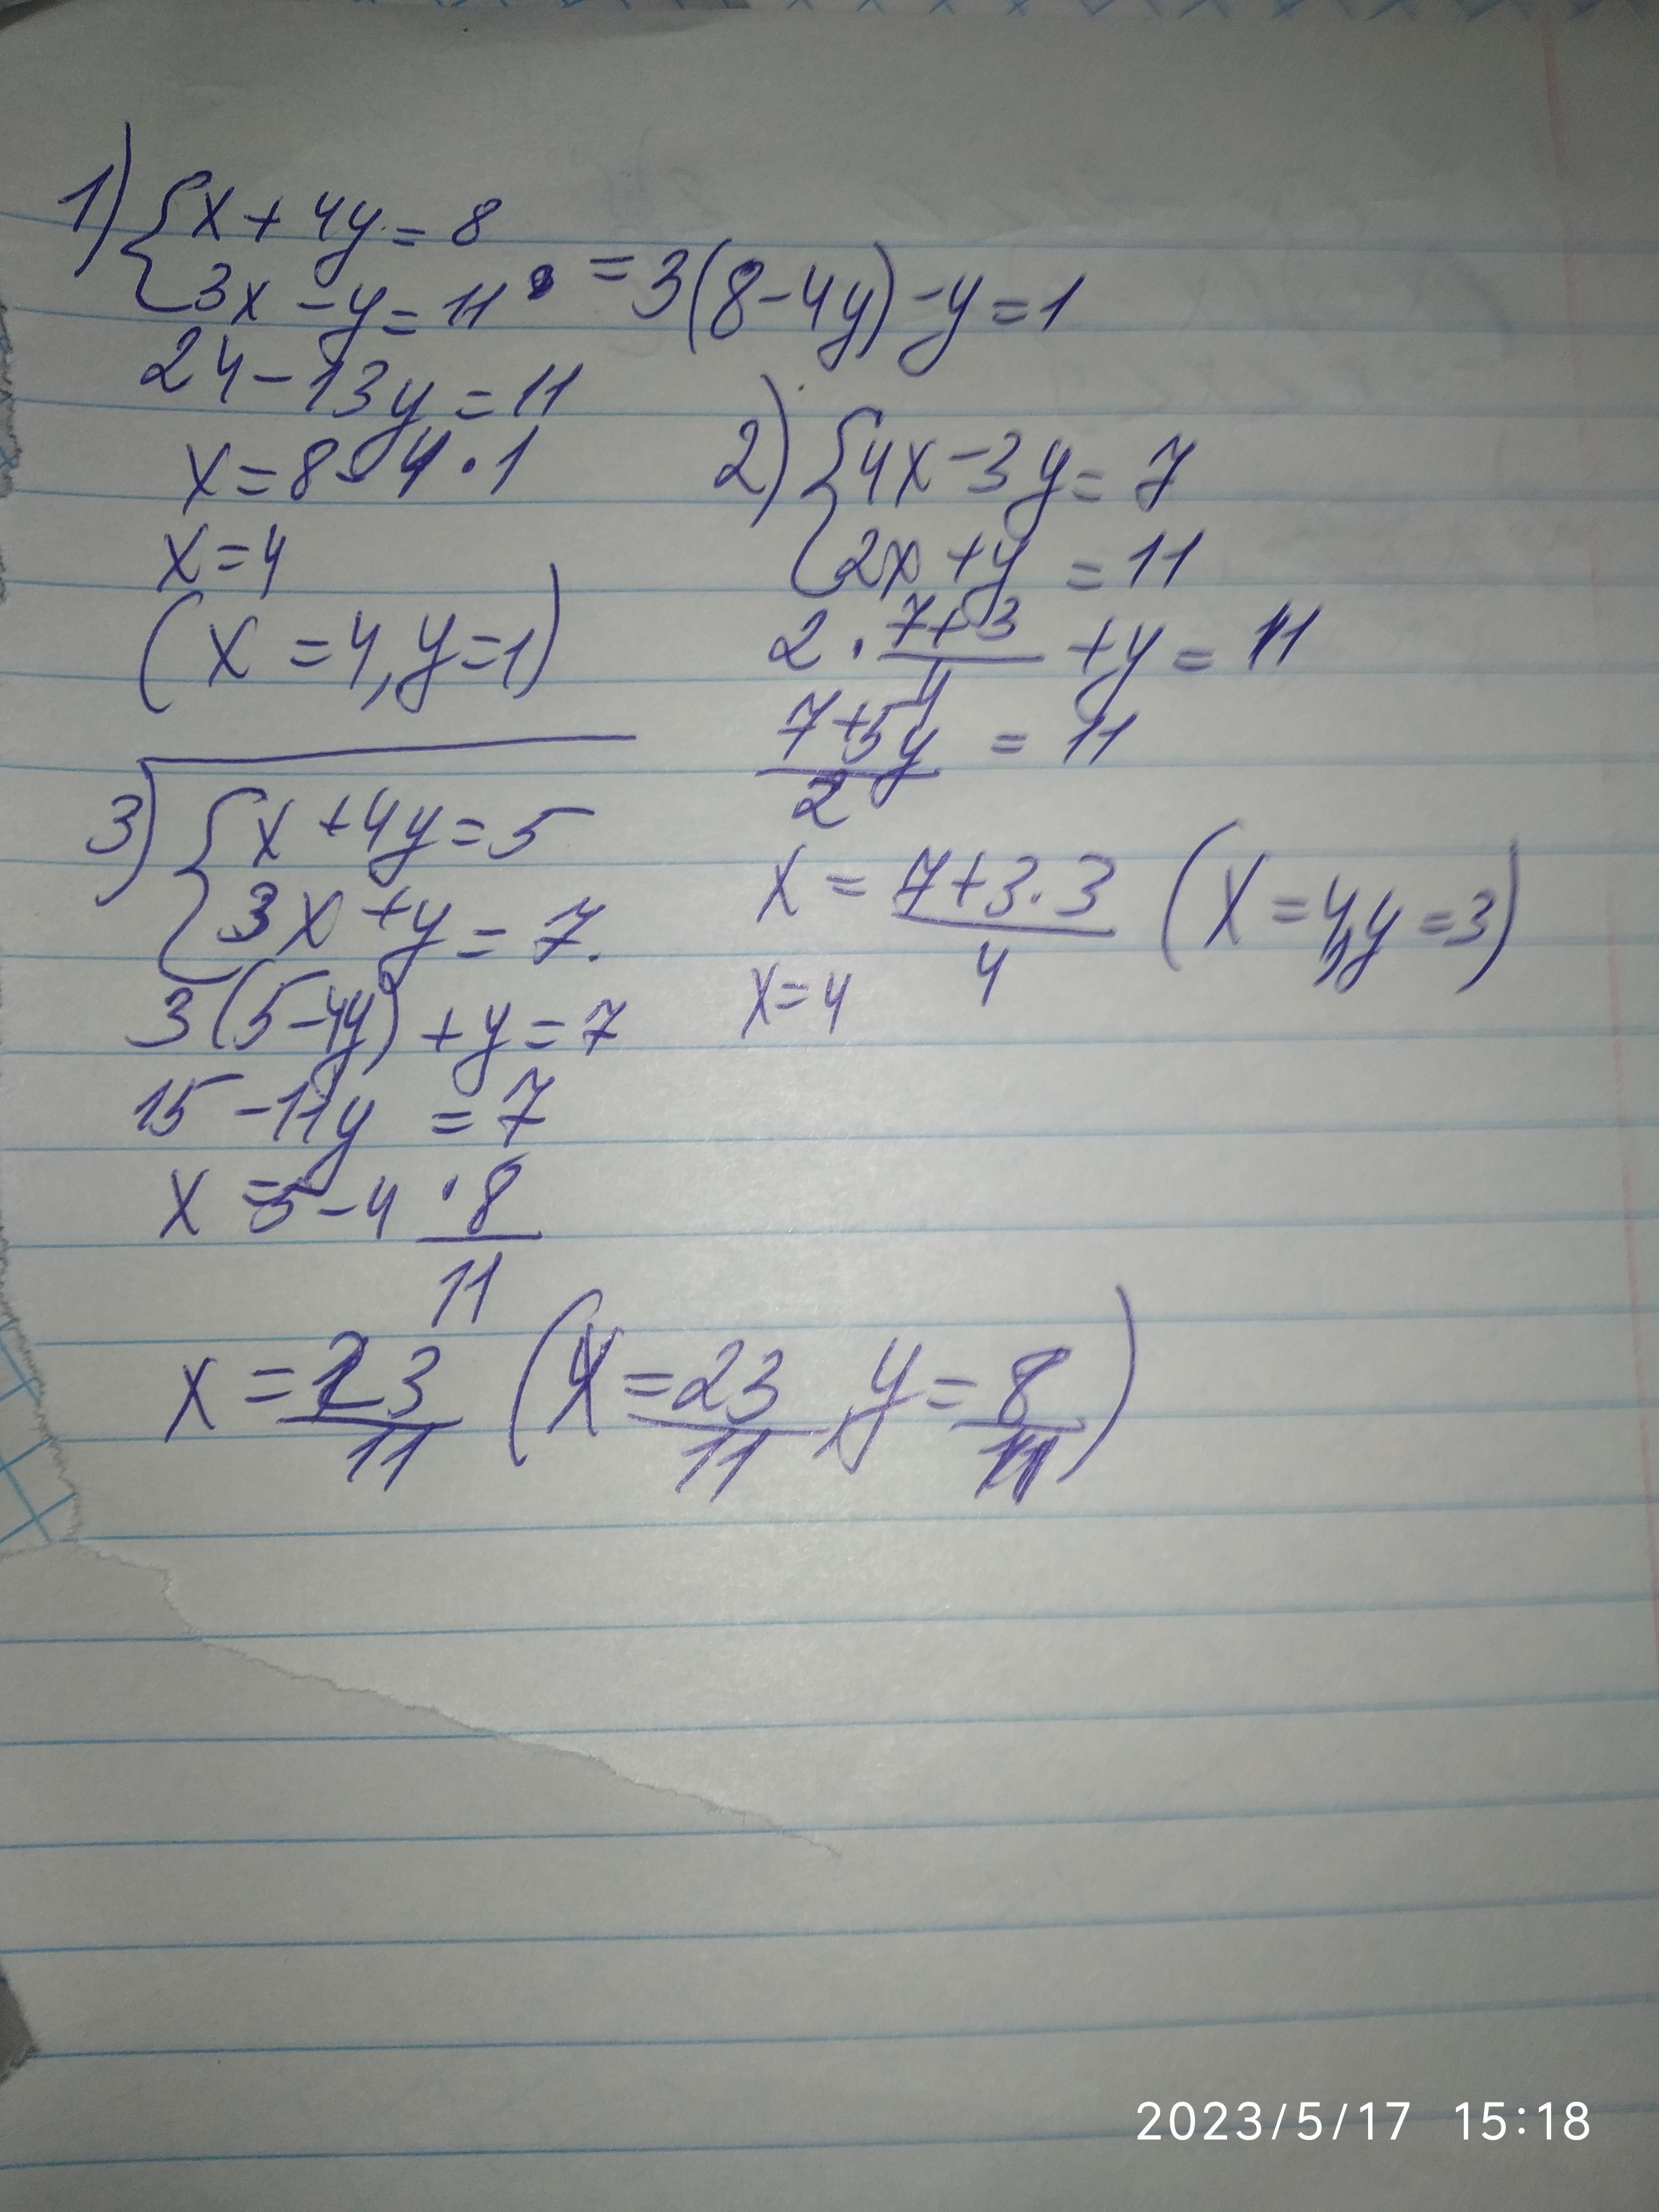 1) {x + 4y = 8
3x - y = 11 = 3(8-4y)-y=1
24-13y=11
x=8-4·1
x=4
(x=4, y=1)
2) {4x-3y=7
2x+y=11
2·(7+3)/4+y=11
(7+5y)/2=11
x=(7+3·3)/4 (x=4, y=3)
x=4
3) {x+4y=5
3x+y=7.
3(5-4y)+y=7
15-11y=7
x=5-4·8/11
x=23/11 (x=23/11, y=8/11)
2023/5/17 15:18